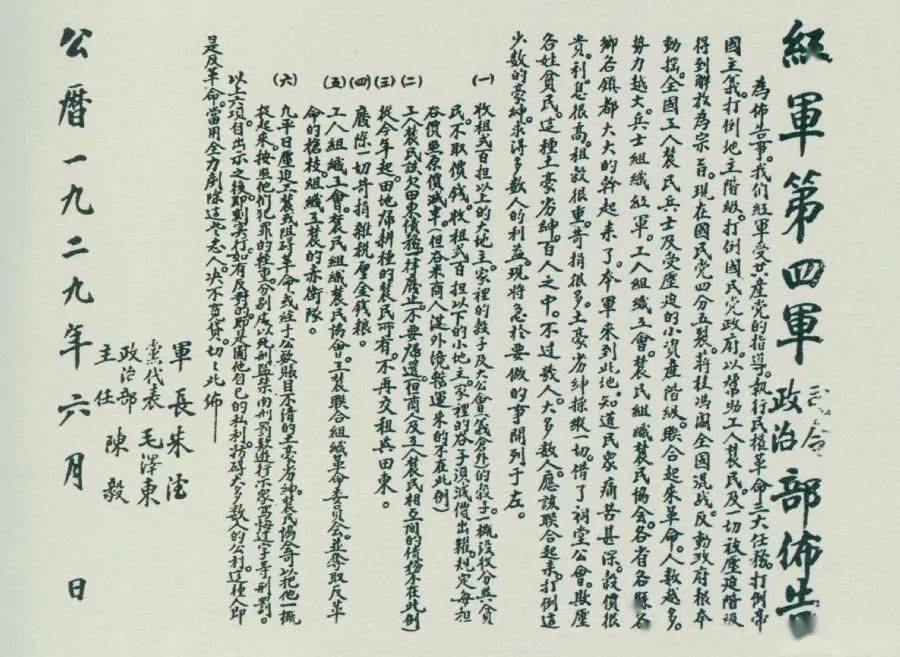 紅軍第四軍司令政治部佈告
為佈告事。我們紅軍受共產黨的指導。執行民權革命三大任務。打倒帝
國主義。打倒地主階級。打倒國民党政府。以幫助工人農民。及一切被壓迫階級
得到解放為宗旨。現在國民党四分五裂。蔣桂馮閻全國混战。反動政府根本
動搖。全國工人農民兵士及受壓迫的小資產階級。聯合起來革命。人數越多。
势力越大。兵士組織紅軍。工人組織工會。農民組織農民協会。各省各縣各
鄉各鎮都大大的幹起來了。本軍來到此地。知道民眾痛苦甚深。穀價很
貴。利息很高。租穀很重。苛捐很多。土豪劣紳操縱一切。借了祠堂公會。欺壓
各姓貧民。這種土豪劣紳。百人之中。不过數人。大多數人。應該联合起來。打倒這
少數的豪紳。求得多數人的利益。現將急於要做的事開列于左。
(一) 收租弍百担以上的大地主。家裡的穀子及大公會(義倉外)的穀子一概沒收分與貧
民。不取價钱。收租弍百担以下的小地主。家裡的谷子須減價出糶。規定每担
谷價照原價減半。(但谷米商人從外境辦運來的不在此例)
(二) 工人農民該欠田東債務。一律廢止。不要歸還。(但商人及工人農民相互間的債務不在此例)
(三) 從今年起。田地歸耕種的農民所有。不再交租與田東。
(四) 廢除一切苛捐雜稅厘金錢粮。
(五) 工人組織工會。農民組織農民協會。工農联合組織革命委員会。並奪取反革
命的槍枝。組織工農的赤衛隊。
(六) 凡平日壓迫工農或阻碍革命。或經手公欵賬目不清的土豪劣紳。農民協會可以把他一概
捉起來。按照他们犯罪的輕重。分別處以死刑監禁罰欵遊行示眾寫悔过字等刑罰。
以上六項自出示之後。即刻实行。如有反對的即是圖他自已的私利。妨碍大多數人的公利。這種人即
是反革命。當用全力剷除這些恶人。决不寬貸。切切此佈
軍長朱德
黨代表毛澤東
政治部主任陳毅
公曆一九二九年六月 日